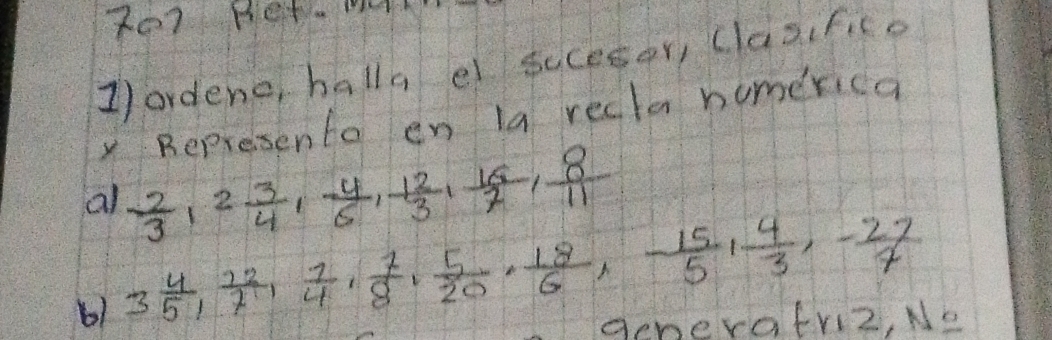 1) ordene, halla el sucesor, clasifico
y Represento en la recta numérica
a) 2/3, 2 3/4, 4/6, 12/3, 16/7, 8/11
b) 3 4/5, 22/7, 7/4, 7/8, 5/20, 18/6, -15/5, 4/3, -27/7
generatriz, Nº